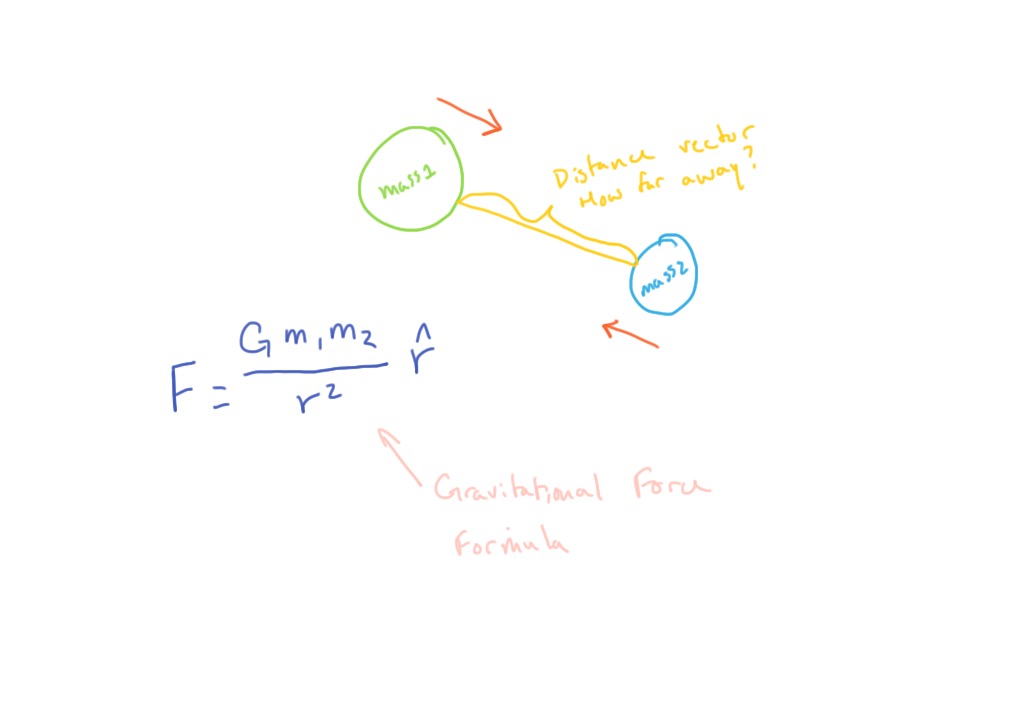 mass1
Distance vector
How far away?
mass2
F = G m₁ m₂ / r² r̂
Gravitational Force
Formula